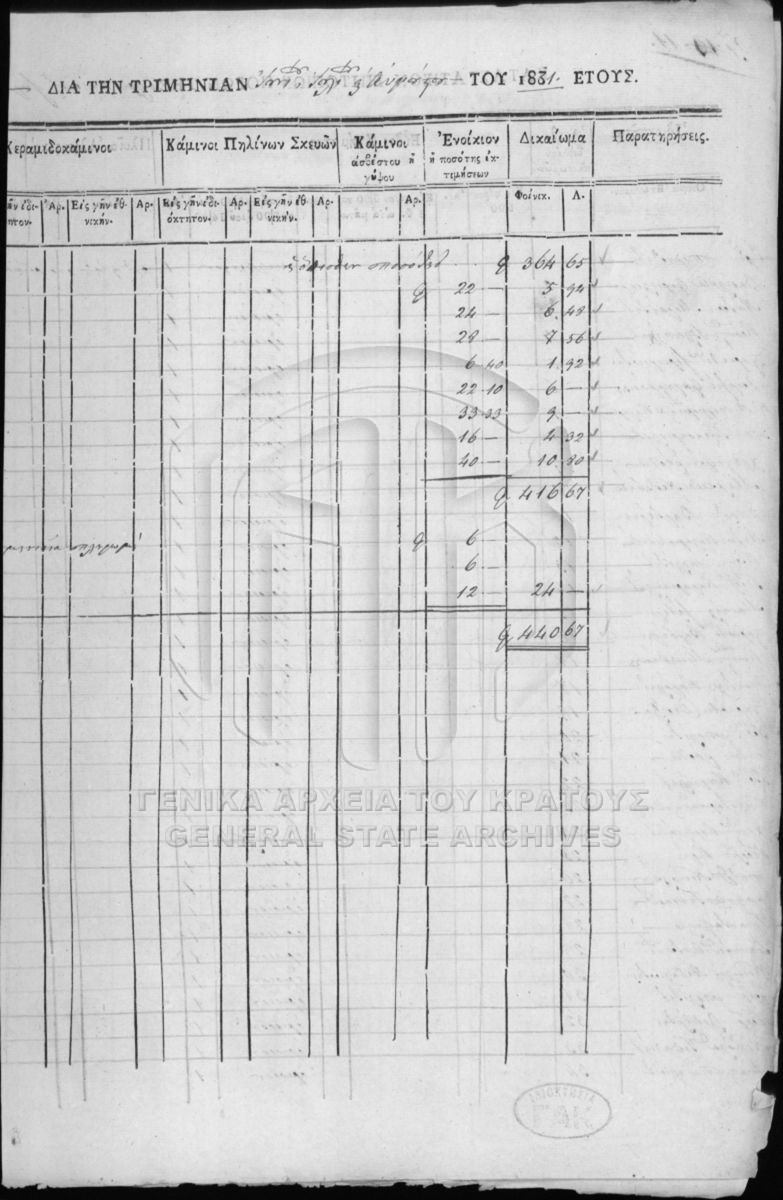 ΔΙΑ ΤΗΝ ΤΡΙΜΗΝΙΑΝ ΤΟΥ 1831. ΕΤΟΥΣ.
Κεραμιδοκάμινοι Κάμινοι Πηλίνων Σκευῶν Κάμινοι ἀσβέστου ἢ γύψου Ἐνοίκιον ἢ ποσότης ἐκτιμήσεων Δικαίωμα Παρατηρήσεις.
Ἀρ. Εἰς γῆν ἐθνικήν. Ἀρ. Εἰς γῆν ἰδιόκτητον. Ἀρ. Εἰς γῆν ἐθνικήν. Ἀρ. Ἀρ. Φοίνικ. Λ.
364 65
22 — 5 94
24 — 6 48
28 — 7 56
6 40 1 92
22 10 6 —
33 33 9 —
16 — 4 32
40 — 10 80
416 67
6 —
6 —
12 — 24 —
440 67
ΓΕΝΙΚΑ ΑΡΧΕΙΑ ΤΟΥ ΚΡΑΤΟΥΣ
GENERAL STATE ARCHIVES
ΙΔΙΟΚΤΗΣΙΑ
ΓΑΚ